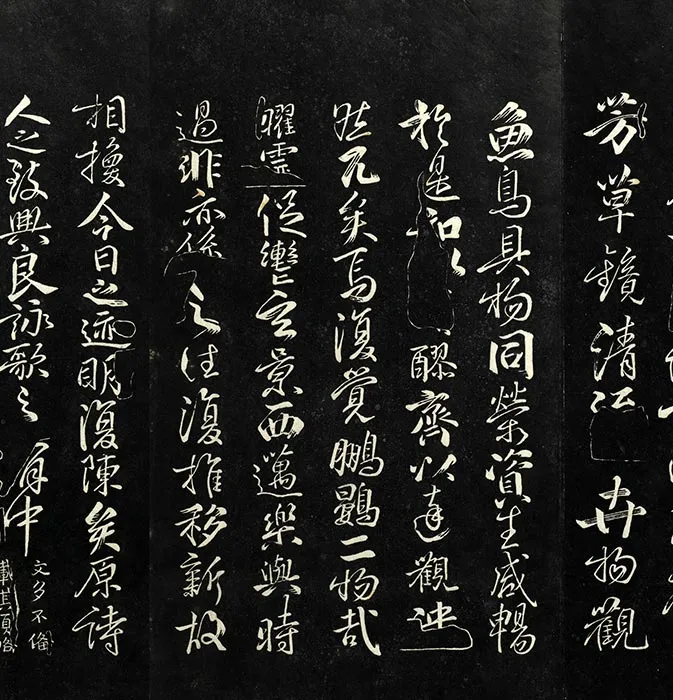 芳草鏡清 卉物觀
魚鳥具物同榮資生咸暢
於是和以醪齊以達觀泱
然兀矣焉復覺鵬鷃二物哉
曜靈促轡玄景西邁樂與時
過悲亦係之往復推移新故
相換今日之迹明復陳矣原詩
人之致興良詠歌之有由
文多不備
載其